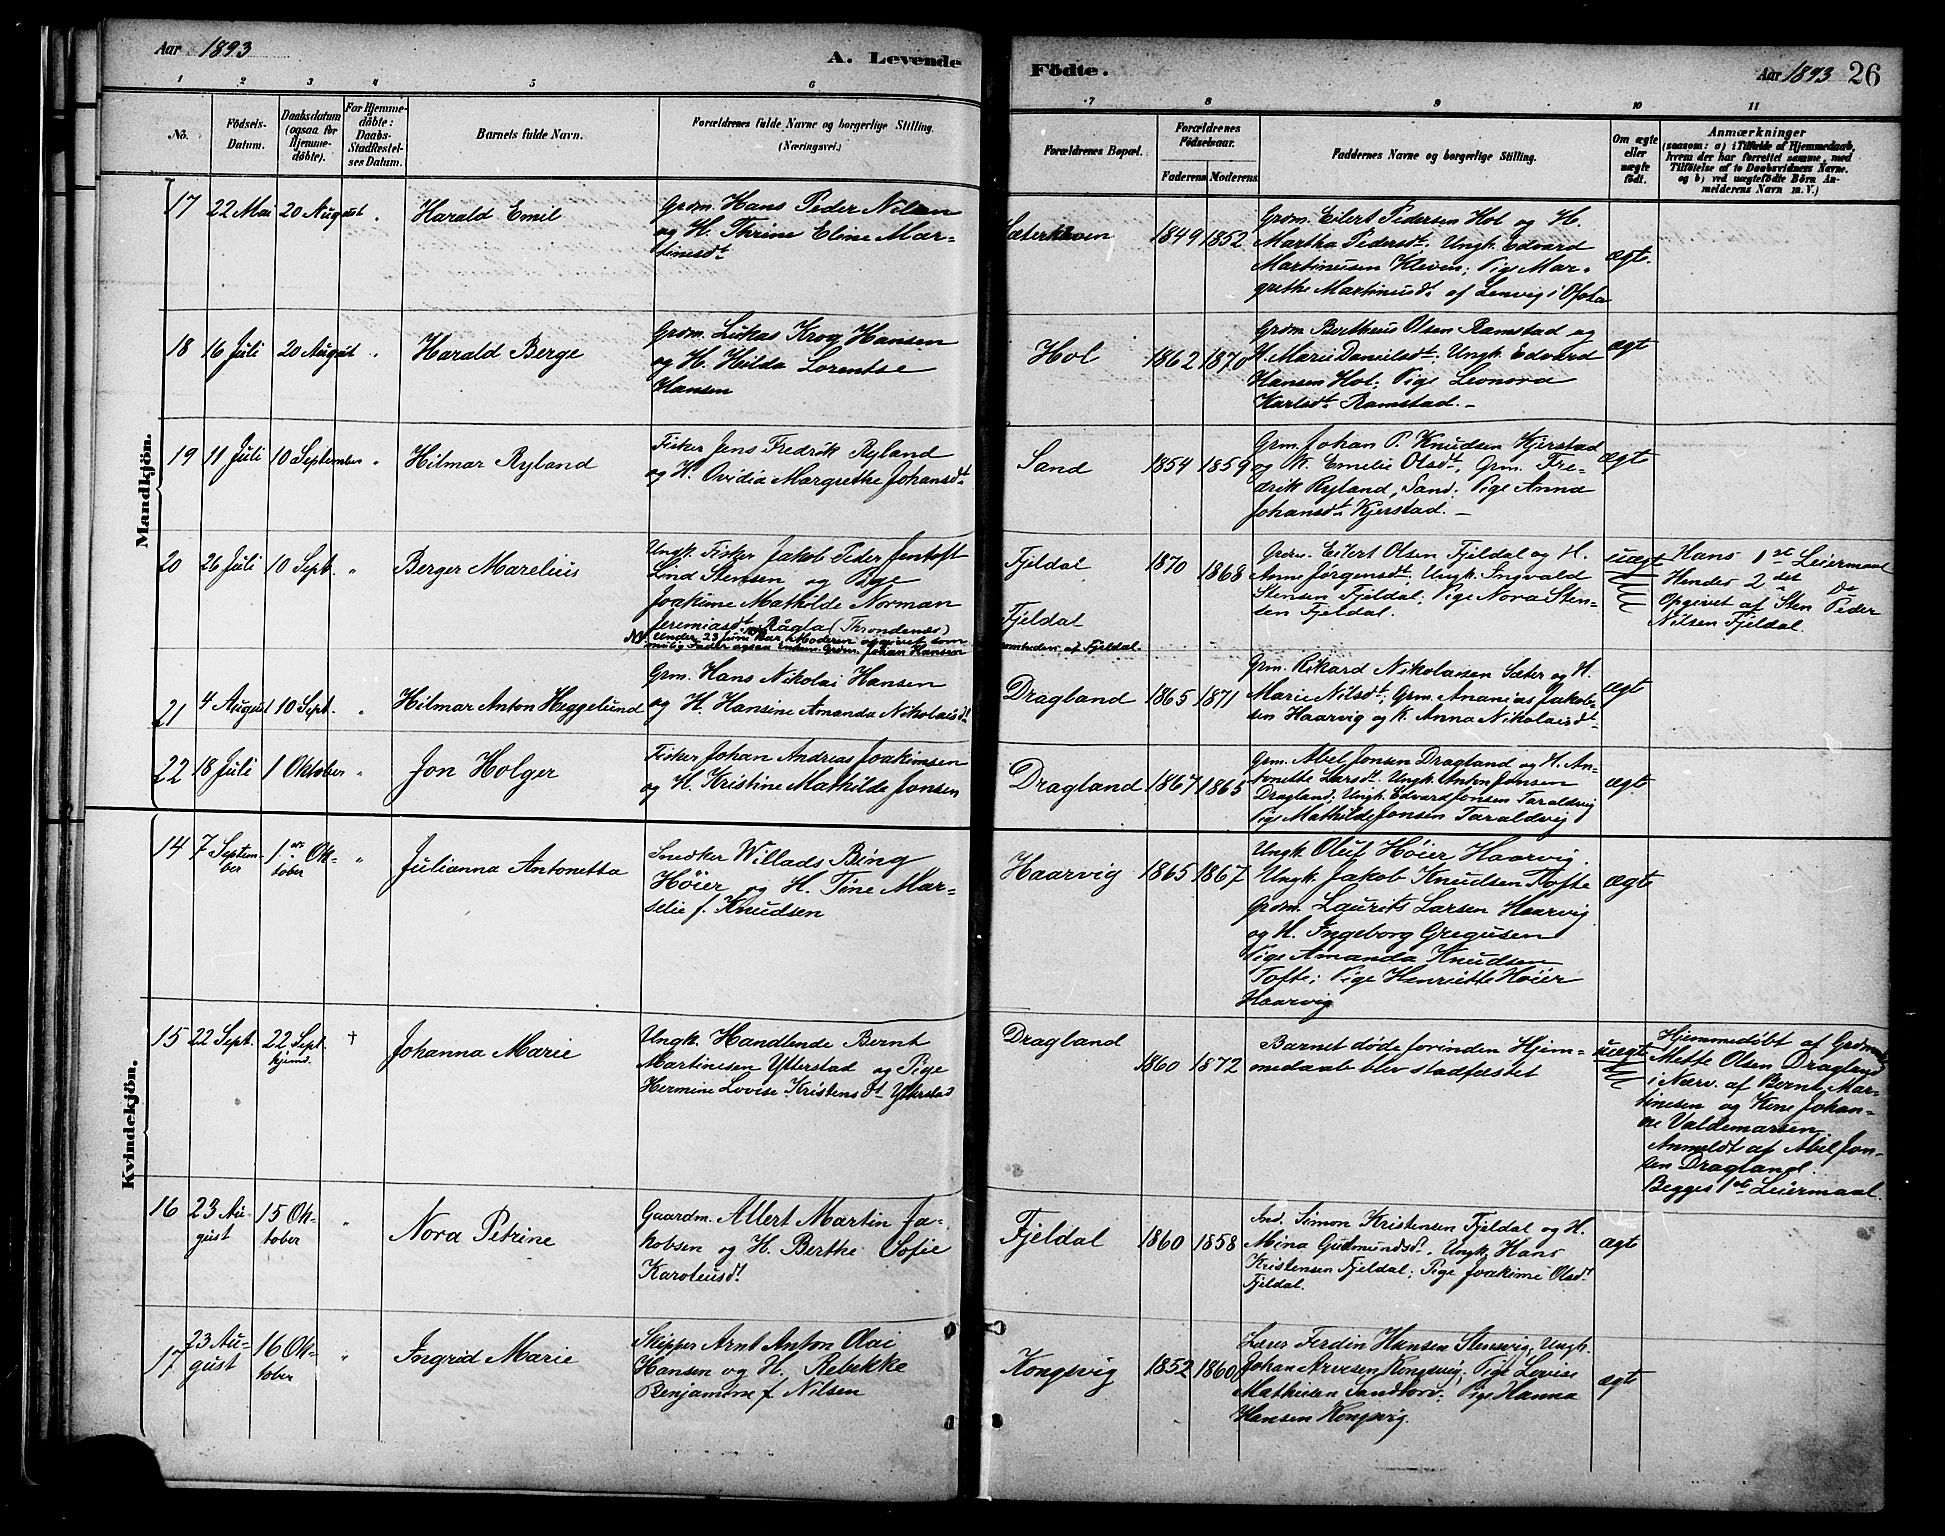 Aar 1893
A. Levende
Födte.
Aar 1893 26
1 2 3 4 5 6 7 8 9 10 11
No.
Födsels-
Datum.
Daabsdatum
(ogsaa for
Hjemme-
döbte).
For Hjemme-
döbte:
Daabs-
Stadfæstel-
ses Datum.
Barnets fulde Navn.
Forældrenes fulde Navne og borgerlige Stilling.
(Næringsvei.)
Forældrenes Bopæl.
Forældrenes
Födselsaar.
Faderens Moderens
Faddernes Navne og borgerlige Stilling.
Om ægte
eller
uægte
födt.
Anmærkninger
(saasom: a) i Tilfælde af Hjemmedaab,
hvem der har forrettet samme, med
Tilföielse af to Daabsvidners Navne.
og b) ved uægtefödte Börn An-
melderens Navn m. V.)
Mandkjön.
17
22 Mai
20 August
Harald Emil
Grdm. Hans Peder Nilsen
og H. Thrine Eline Mar-
tinisdt
1849 1852
Grdm. Eilert Pedersen Hol og H.
Martha Pedersdt. Ungk. Edvard
Martinusen Kleven; Pige Mar-
grethe Martinusdt. af Lenvig i Ofoten
ægte.
18
16 Juli
20 August
Harald Berge
Grdm. Lukas Krog Hansen
og H. Hilda Lorentse
Hansen
Hol
1862 1870
Grdm. Bertheus Olsen Ramstad og
H. Marie Danielsdt; Ungk. Edvard
Hansen Hol; Pige Leonora
Karlsdt. Ramstad. -
ægt
19
11 Juli
10 September
Hilmar Ryland
Fisker Jens Fredrik Ryland
og H. Ovidia Margrethe Johansdt.
Sand
1854 1859
Grm. Johan P. Knudsen Kjerstad
og K. Emelie Olsdt, Grm. Fre-
drik Ryland, Sand. Pige Anna
Johansdt. Kjerstad. -
ægte
20
26 Juli
10 Sept. "
Berger Marelius
Ungk. Fisker Jakob Peder Jentoft
Lind Stensen og Pige
Joakime Mathilde Norman
Jeremiasdt. Rågla (Throndenæs)
NB. Under 23 Juni Har Moderen opgivet som
mulig Fader ogsaa Enkem. Grdm. Johan Hansen
Fjeldal
Fjeldal
af Fjeldal.
1870 1868
Grdm. Eilert Olsen Fjeldal og H.
Anne Jørgensdt. Ungk. Ingvald
Stensen Fjeldal; Pige Nora Sten-
sen Fjeldal.
uægte
Hans 1ste Leiermaal
Hendes 2det
Opgivet af Sten Peder
Nilsen Fjeldal.
21
4 August
10 Sept. "
Hilmar Anton Heggelund
Grm. Hans Nikolai Hansen
og H. Hansine Amanda Nikolaisdt
Dragland
1865 1871
Grm. Rikard Nikolaisen Sæter og H.
Marie Nilsdt; Grm. Ananias Jakob-
sen Haarvig og K. Anna Nikolaisdt
ægt
22
18 Juli
1 Oktober "
Jon Holger
Fisker Johan Andreas Joakimsen
og H. Kristine Mathilde Jonsen
Dragland
1867 1865
Grm. Abel Jonsen Dragland og H. An-
tonette Larsdt. Ungk. Anton Jonsen
Dragland; Ungk. Edvard Jonsen Taraldsvig
Pige Mathilde Jonsen Taraldsvig
ægt.
Kvindekjön.
14
7 Septem-
ber
1ste Ok-
tober "
Julianna Antonetta
Snedker Willads Bing
Høier og H. Tine Mar-
selie f. Knudsen
Haarvig
1865 1867
Ungk. Oluf Høier Haarvig.
Ungk. Jakob Knudsen Tofte
Grdm. Laurits Larsen Haarvig
og H. Ingeborg Gregusen
Pige Amanda Knudsen
Tofte; Pige Henriette Høier
Haarvig
ægte
15
22 Sept.
22 Sept.
hjemd.
†
Johanna Marie
Ungk. Handlende Bernt
Martinesen Ytterstad og Pige
Hermine Lovise Kristensdt Ytterstad
Dragland
1860 1872
Barnet døde forinden Hjem-
medaab blev stadfæstet
uægte
Hjemmedøbt af Grdm
Mette Olsen Dragland
i Nærv. af Bernt Mar-
tinesen og Kone Johan-
ne Valdemarsen.
Anmeldt af Abel Jon-
sen Dragland.
Begges 1ste Leiermaal.
16
23 Au-
gust
15 Ok-
tober
"
Nora Petrine
Gaardm. Allert Martin Ja-
kobsen og H. Berthe Sofie
Karoleusdt
Fjeldal
1860 1858
Ind. Simon Kristensen Fjeldal og H.
Mina Gudmundsdt. Ungk. Hans
Kristensen Fjeldal; Pige Joakime Olsdt
Fjeldal.
ægte
17
23 Au-
gust
16 Ok-
tober
"
Ingrid Marie
Skipper Arnt Anton Olai
Hansen og H. Rebekke
Benjamine f. Nilsen
Kongsvig
1852 1860
Lærer Ferdin Hansen Stensvig; Ungk.
Johan Arvesen Kongsvig; Pige Lovise
Mathisen Sandtorv; Pige Hanna
Hansen Kongsvig.
ægte